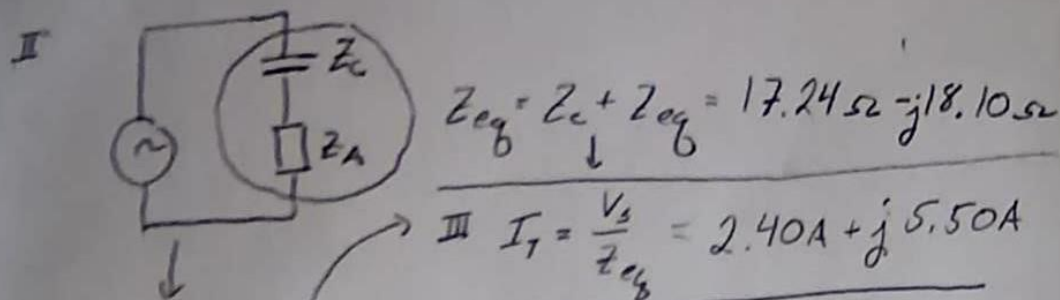 II
Zc
ZA
Zeq = Zc + Zeq = 17.24 Ω - j18.10 Ω
III I₁ = Vs / Zeq = 2.40A + j 5.50A